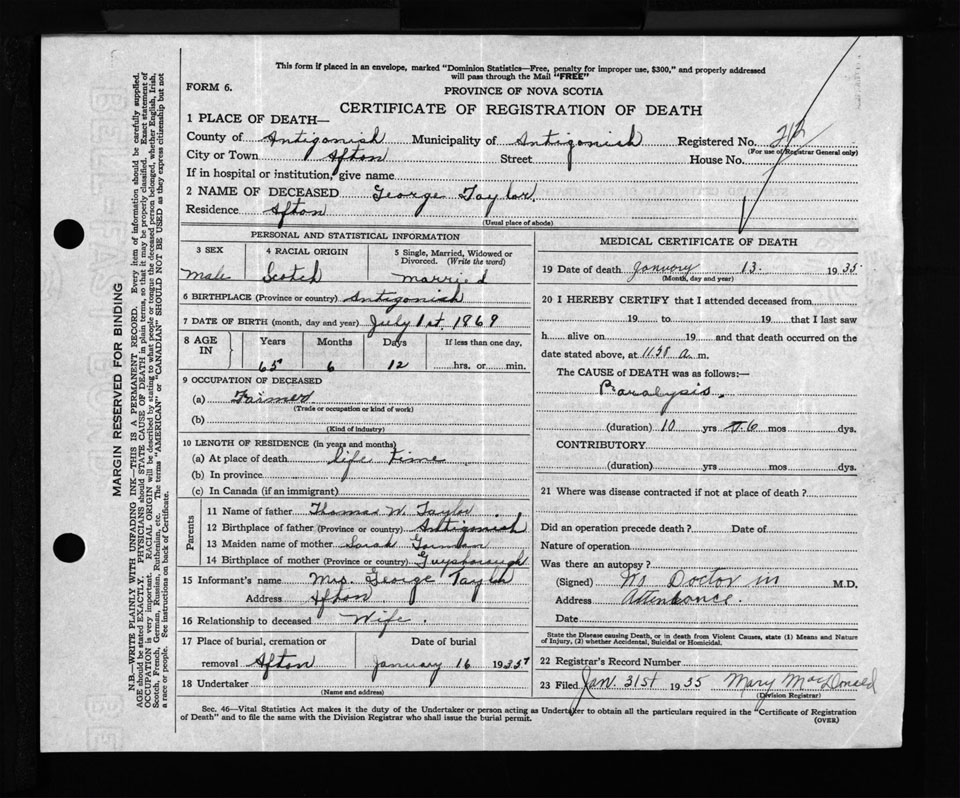 This form if placed in an envelope, marked "Dominion Statistics—Free, penalty for improper use, $300," and properly addressed
will pass through the Mail "FREE"
FORM 6.
PROVINCE OF NOVA SCOTIA
CERTIFICATE OF REGISTRATION OF DEATH
1 PLACE OF DEATH—
County of Antigonish Municipality of Antigonish Registered No. 212
(For use of Registrar General only)
City or Town Afton Street House No.
If in hospital or institution, give name
2 NAME OF DECEASED George Taylor.
Residence Afton
(Usual place of abode)
PERSONAL AND STATISTICAL INFORMATION
3 SEX 4 RACIAL ORIGIN 5 Single, Married, Widowed or
Divorced. (Write the word)
Male Scotch married
6 BIRTHPLACE (Province or country) Antigonish
7 DATE OF BIRTH (month, day and year) July 1st 1869
8 AGE IN Years Months Days If less than one day,
65 6 12 hrs. or min.
9 OCCUPATION OF DECEASED
(a) Farmer
(Trade or occupation or kind of work)
(b)
(Kind of industry)
10 LENGTH OF RESIDENCE (in years and months)
(a) At place of death life time
(b) In province
(c) In Canada (if an immigrant)
Parents
11 Name of father Thomas W. Taylor
12 Birthplace of father (Province or country) Antigonish
13 Maiden name of mother Sarah Gorman
14 Birthplace of mother (Province or country) Guysborough
15 Informant's name Mrs. George Taylor
Address Afton
16 Relationship to deceased Wife.
17 Place of burial, cremation or Date of burial
removal Afton January 16 1935
18 Undertaker
(Name and address)
MEDICAL CERTIFICATE OF DEATH
19 Date of death January 13. 1935
(Month, day and year)
20 I HEREBY CERTIFY that I attended deceased from
19 to 19 that I last saw
h alive on 19 and that death occurred on the
date stated above, at 11.58 a. m.
The CAUSE OF DEATH was as follows:—
Paralysis.
(duration) 10 yrs 6 mos dys.
CONTRIBUTORY
(duration) yrs mos dys.
21 Where was disease contracted if not at place of death?
Did an operation precede death? Date of
Nature of operation
Was there an autopsy?
(Signed) No Doctor in M.D.
Address Attendance.
Date
State the Disease causing Death, or in death from Violent Causes, state (1) Means and Nature
of Injury, (2) whether Accidental, Suicidal or Homicidal.
22 Registrar's Record Number
23 Filed Jan. 31st 1935 Mary MacDonald
(Division Registrar)
Sec. 46—Vital Statistics Act makes it the duty of the Undertaker or person acting as Undertaker to obtain all the particulars required in the "Certificate of Registration
of Death" and to file the same with the Division Registrar who shall issue the burial permit.
(OVER)
MARGIN RESERVED FOR BINDING
N.B.—WRITE PLAINLY WITH UNFADING INK—THIS IS A PERMANENT RECORD. Every item of information should be carefully supplied.
AGE should be stated EXACTLY. PHYSICIANS should STATE CAUSE OF DEATH in plain terms, so that it may be properly classified. Exact statement of
OCCUPATION is very important. RACIAL ORIGIN will be described by stating to what people or tongue the deceased person belonged, whether English, Irish,
Scotch, French, German, Russian, Ruthenian, etc. The terms "AMERICAN" or "CANADIAN" SHOULD NOT BE USED as they express citizenship but not
a race or people. See instructions on back of Certificate.